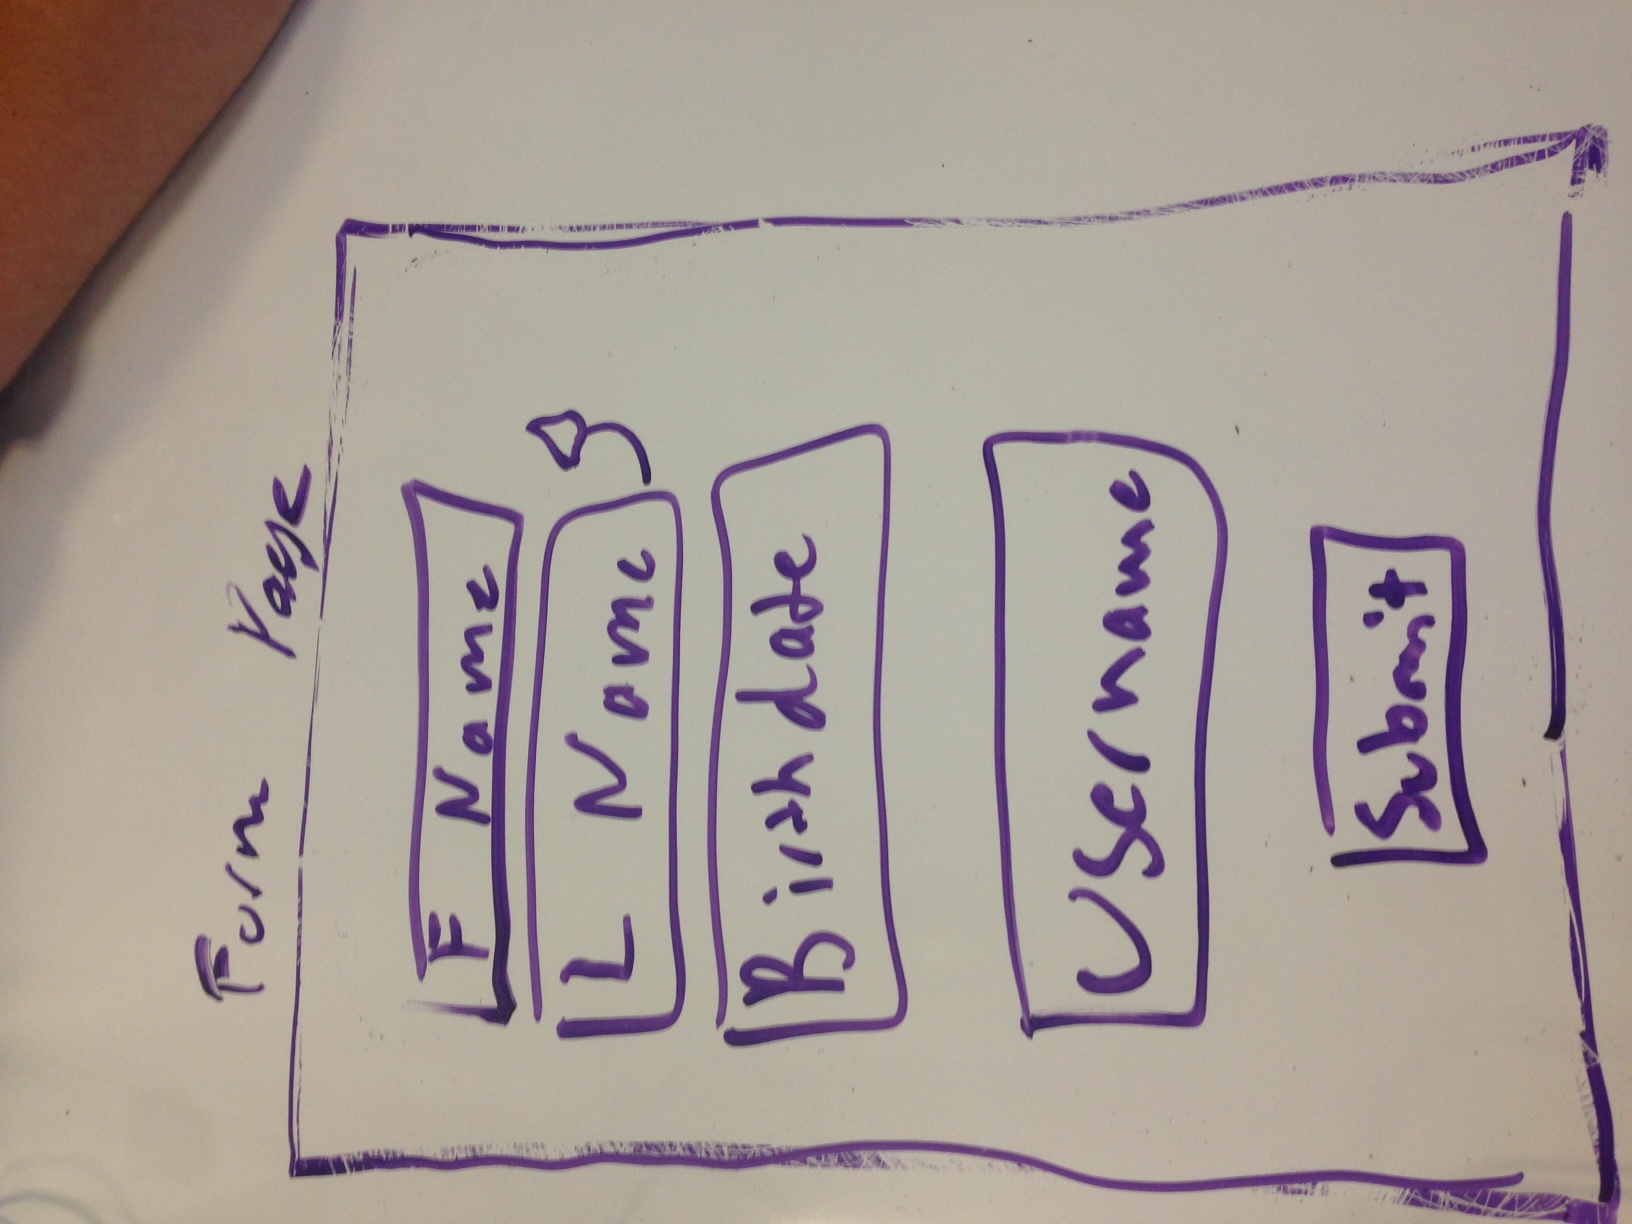 Form Page
F Name
L Name
Birthdate
Username
Submit